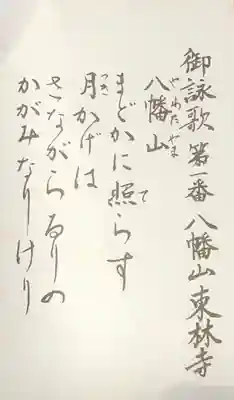 御詠歌 第一番 八幡山東林寺
八幡山
まどかに照らす
月かげは
さながらるりの
かがみなりけり